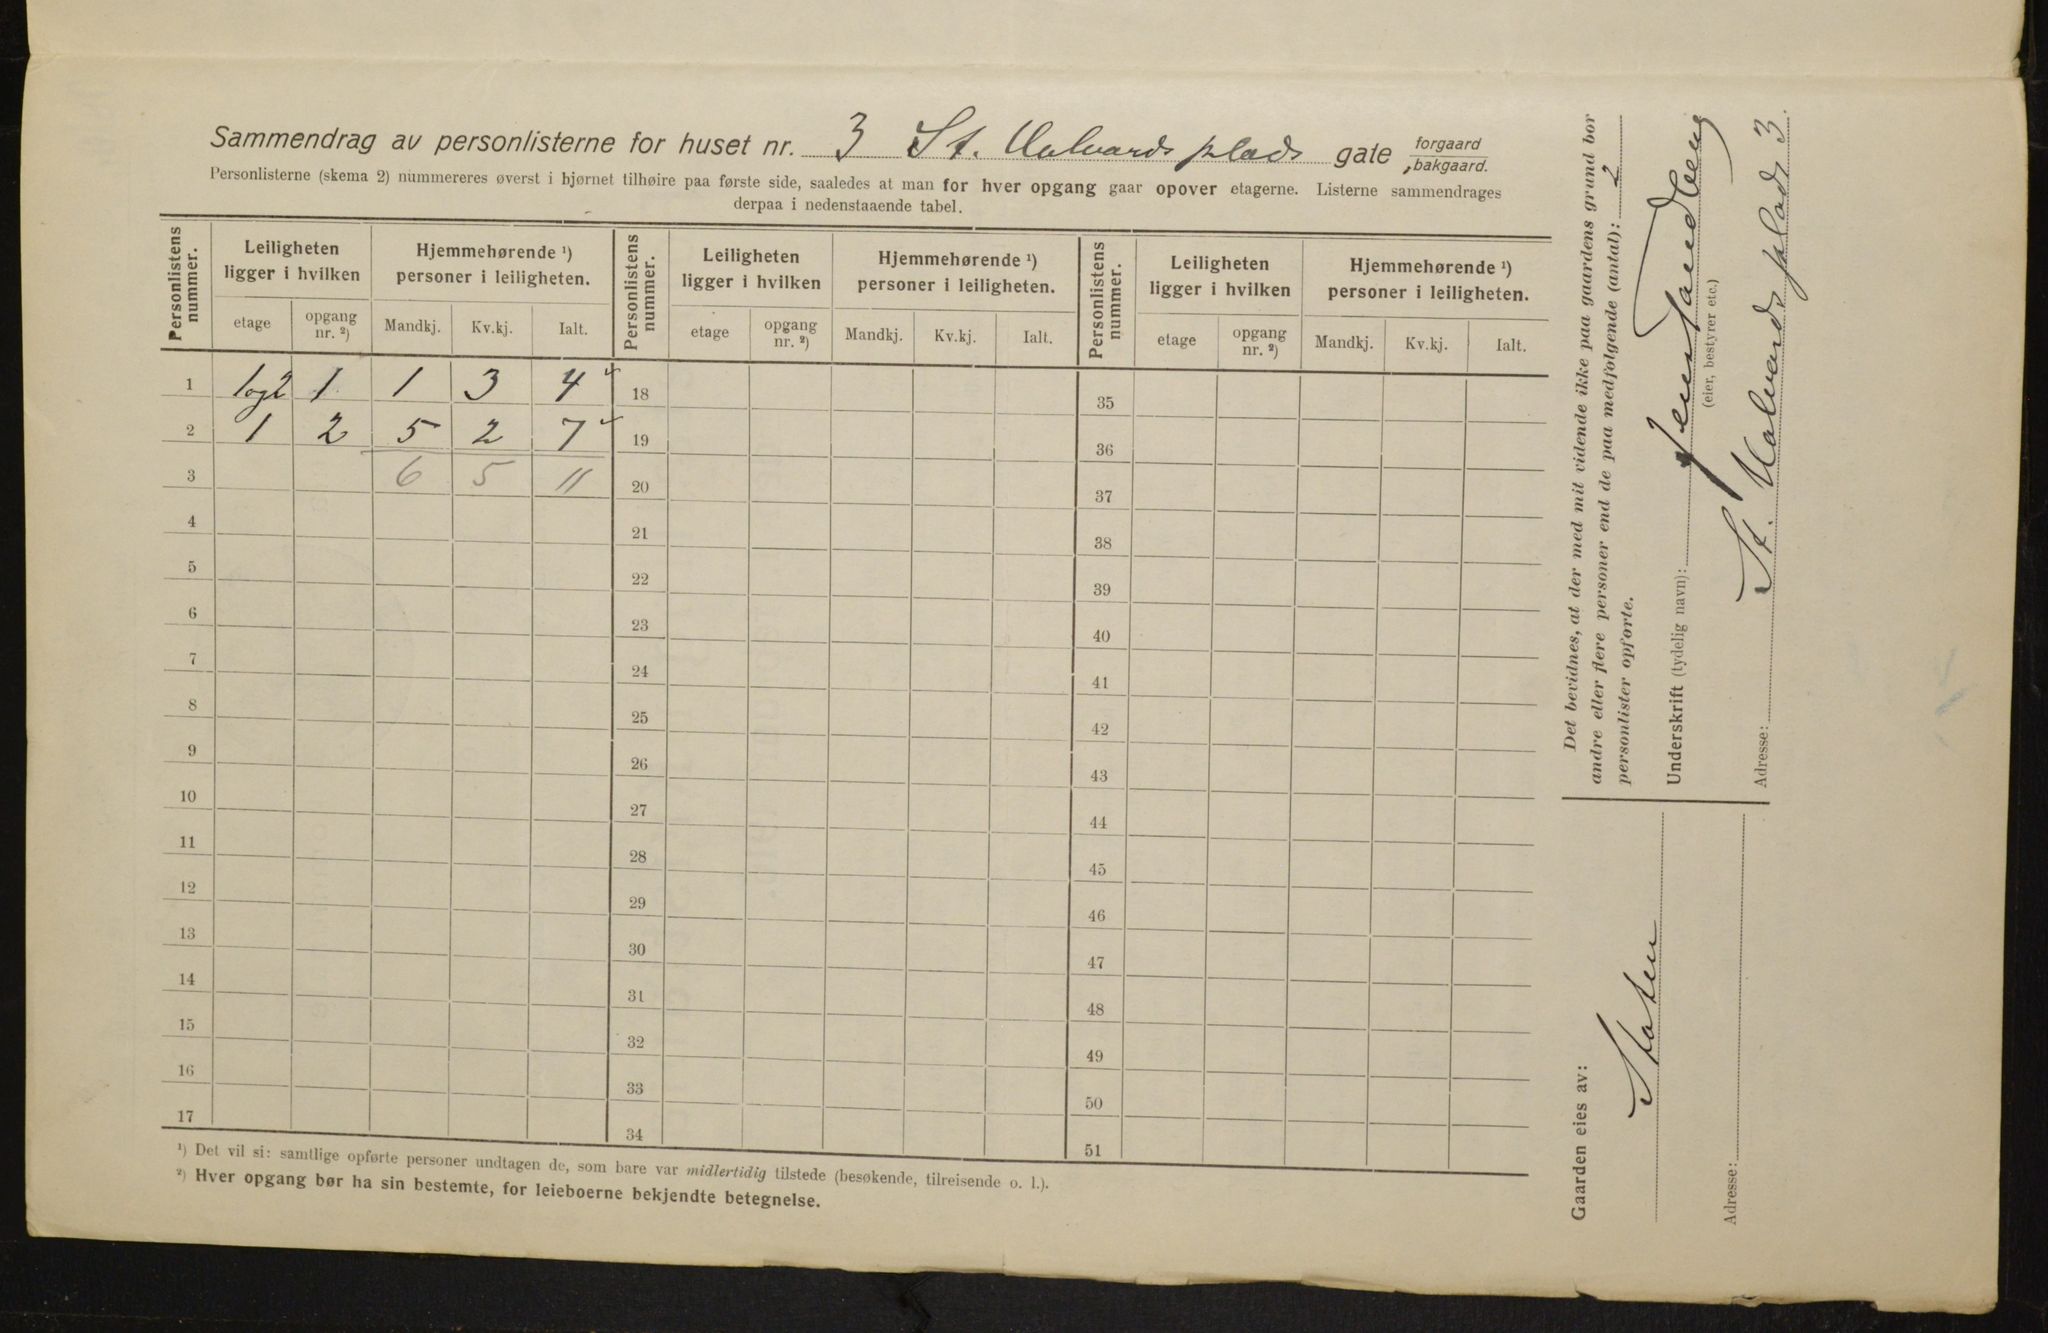 Sammendrag av personlisterne for huset nr. 3 St. Halvards plads gate forgaard bakgaard.
Personlisterne (skema 2) nummereres øverst i hjørnet tilhøire paa første side, saaledes at man for hver opgang gaar opover etagerne. Listerne sammendrages
derpaa i nedenstaaende tabel.
Personlistens nummer. Leiligheten ligger i hvilken Hjemmehørende ¹) personer i leiligheten. Personlistens nummer. Leiligheten ligger i hvilken Hjemmehørende ¹) personer i leiligheten. Personlistens nummer. Leiligheten ligger i hvilken Hjemmehørende ¹) personer i leiligheten.
etage opgang nr. ²) Mandkj. Kv.kj. Ialt. etage opgang nr. ²) Mandkj. Kv.kj. Ialt. etage opgang nr. ²) Mandkj. Kv.kj. Ialt.
1 1og2 1 1 3 4 18 35
2 1 2 5 2 7 19 36
3 6 5 11 20 37
4 21 38
5 22 39
6 23 40
7 24 41
8 25 42
9 26 43
10 27 44
11 28 45
12 29 46
13 30 47
14 31 48
15 32 49
16 33 50
17 34 51
¹) Det vil si: samtlige opførte personer undtagen de, som bare var midlertidig tilstede (besøkende, tilreisende o. l.).
²) Hver opgang bør ha sin bestemte, for leieboerne bekjendte betegnelse.
Det bevidnes, at der med mit vidende ikke paa gaardens grund bor
andre eller flere personer end de paa medfølgende (antal): 2
personlister opførte.
Underskrift (tydelig navn): Jens
(eier, bestyrer etc.)
Adresse: St. Halvards plads 3.
Gaarden eies av:
Staten
Adresse: